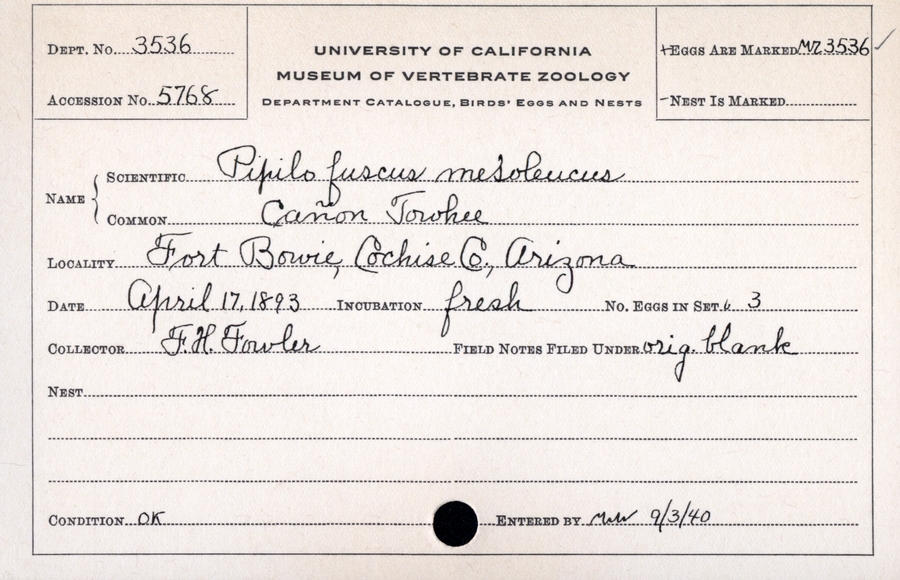 DEPT. No. 3536
UNIVERSITY OF CALIFORNIA
+EGGS ARE MARKED MVZ 3536 ✓
MUSEUM OF VERTEBRATE ZOOLOGY
ACCESSION No. 5768
DEPARTMENT CATALOGUE, BIRDS' EGGS AND NESTS
-NEST IS MARKED
NAME
SCIENTIFIC Pipilo fuscus mesoleucus
COMMON Cañon Towhee
LOCALITY Fort Bowie, Cochise Co., Arizona
DATE April 17, 1893 INCUBATION fresh No. EGGS IN SET 3
COLLECTOR F.H. Fowler FIELD NOTES FILED UNDER orig. blank
NEST
CONDITION OK ENTERED BY 9/3/40